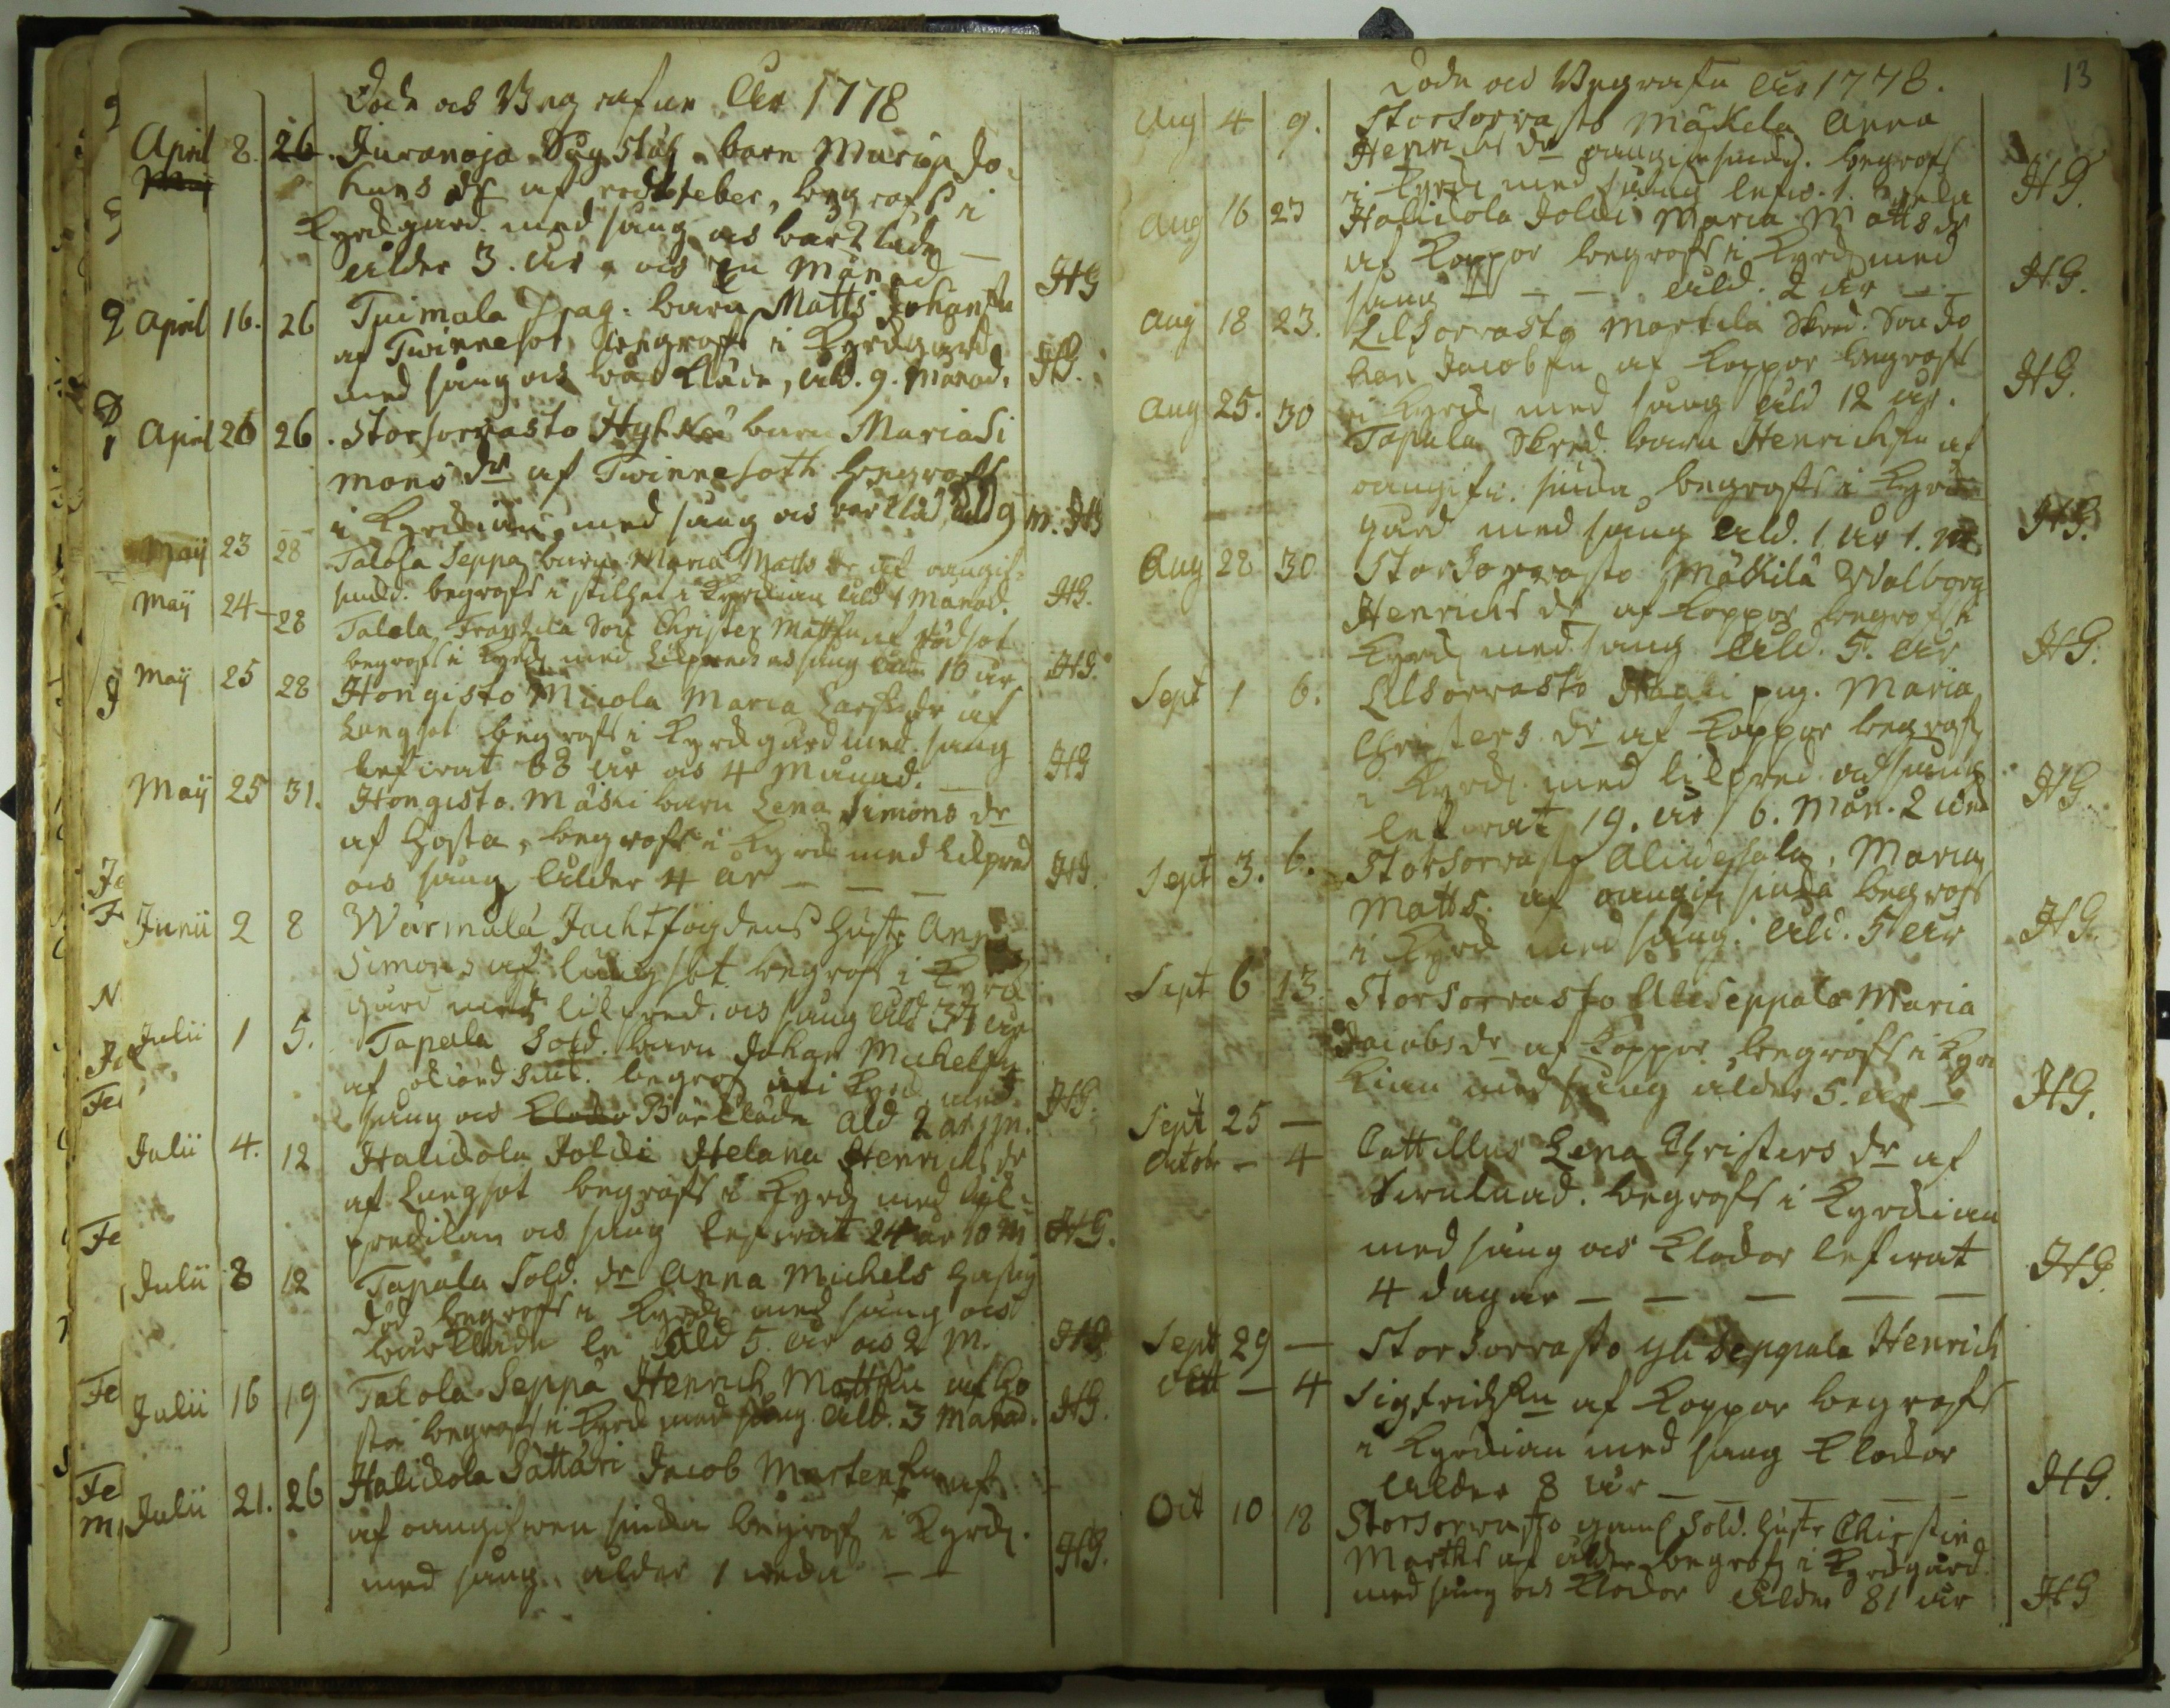 Döde och Begrafne Åhr 1778
April 8. 26. Juranoja barn Maria Jo-
May
hans dr af rödfeber, begrofs i
Kyrckgård med sång och bårkläde
ålder 3. åhr och en Månad HG
April 16. 26 Tuimala barn Matts Johansn
af Twinnesot begrofs i Kyrckgård
med sång och bårkläde, åld. 9. månad. HG.
April 26 26. Storsorvasto barn Maria Si
mons dr af Twinnesoth begrofs
i Kyrckian med sång och bårkläd, åld 9 m. HG
Maij 23 28 Talola Seppä barn Maria Matts dr af oangif-
siukd. begrofs i stilhet i Kyrckian åld 1 Månad. HG.
Maij 24 - 28 Talola son Christer Mattsn af rödsot
begrofs i Kyrck med Likpred och sång åld. 10 åhr HG.
Maij 25 28 Hongisto Micola Maria Larsdr af
Lungsot begrofs i Kyrckgård med sång
lefwat 63 åhr och 4 månad. HG
Maij 25 31. Hongisto Mäski barn Lena Simons dr
af Hosta, begrofs i Kyrck med Likpred
och sång ålder 4 år — — — HG.
Junii 2 8 Warmala Jachtfogdens hustr Anna
Simons af lungsot begrofs i Kyrck
gård med likpred. och sång åld 37 åhr
Julii 1 5. Tapala Sold. barn Johan Michelsn
af begrof uti Kyrck med
sång och Bårkläde åld 2 år 1 m. HG.
Julii 4. 12 Halickola Joldi Helena Henrichsdr
af Lungsot begrofs i Kyrck med lik-
predikan och sång lefwat 24 år 10 M HG.
Julii 8 12 Tapala Sold. dr Anna Michels hastig
död begrofs i Kyrck med sång och
bårkläde åld 5. åhr och 2 M. HG
Julii 16 19 Talola Seppä Henrich Mattsn af ho
sta begrofs i Kyrck med sång. åld. 3 månad. HG.
Julii 21. 26 Halickola Sattari Jacob Martensn af
af oangifwen siuka begrof i Kyrck.
med sång ålder 1 wecka — — HG.
13
Döde och Begrafne åhr 1778.
Aug 4 9. Storsorvasto Mäkelä Anna
Henrichs dr oangif siukd. begrofs
i Kyrck med sång lefw. 1. HG.
Aug 16 23 Halickola Joldi Maria Matts dr
af Koppor begrofs i Kyrck med
sång — — — åld. 2 åhr — — HG.
Aug 18 23. Lilsorvasto Martila Skred. Son Jo
han Jacobsn af Koppor begrofs
i Kyrck med sång åld 12 åhr. HG.
Aug 25. 30 Tapala Skred. barn Henrichsn af
oangifn. siuka begrofs i Kyrck
gård med sång åld. 1. åhr 1. M. HG.
Aug 28 30. Storsorvasto Mäkilä Walborg
Henrichs dr af Koppor begrofs i
Kyrck med sång åld. 5. åhr HG.
Sept 1 6. Lilsorvasto pig. Maria
Christers dr af Koppor begrofs
i Kyrck med likpred. och sång
lefwat 19. åhr 6. Mån. 2 HG
Sept 3. 6. Storsorvasto Maria
Matts. af oangif siuka begrofs
i Kyrck med sång. åld. 5 åhr HG.
Sept 6 13. Storsorvasto Aliseppala Maria
Jacobs dr af Koppor begrofs i Kyrc
kian med sång ålder 5. åhr — HG.
Sept 25 —
Octob — 4 Cattillus Lena Christers dr af
begrofs i Kyrckian
med sång och Klockor lefwat
4 dagar — — — — — HG.
Sept 29 — Storsorvasto Yliseppala Henrich
Oct — 4 Sigfridsn af Koppor begrofs
i Kyrckian med sång Klockor
ålder 8 åhr — — — — — HG.
Oct 10 18 Storsorvasto gaml Sold. hustr Christin
Marths af ålder begrof i Kyrckgård
med sång och Klockor ålder 81 åhr HG